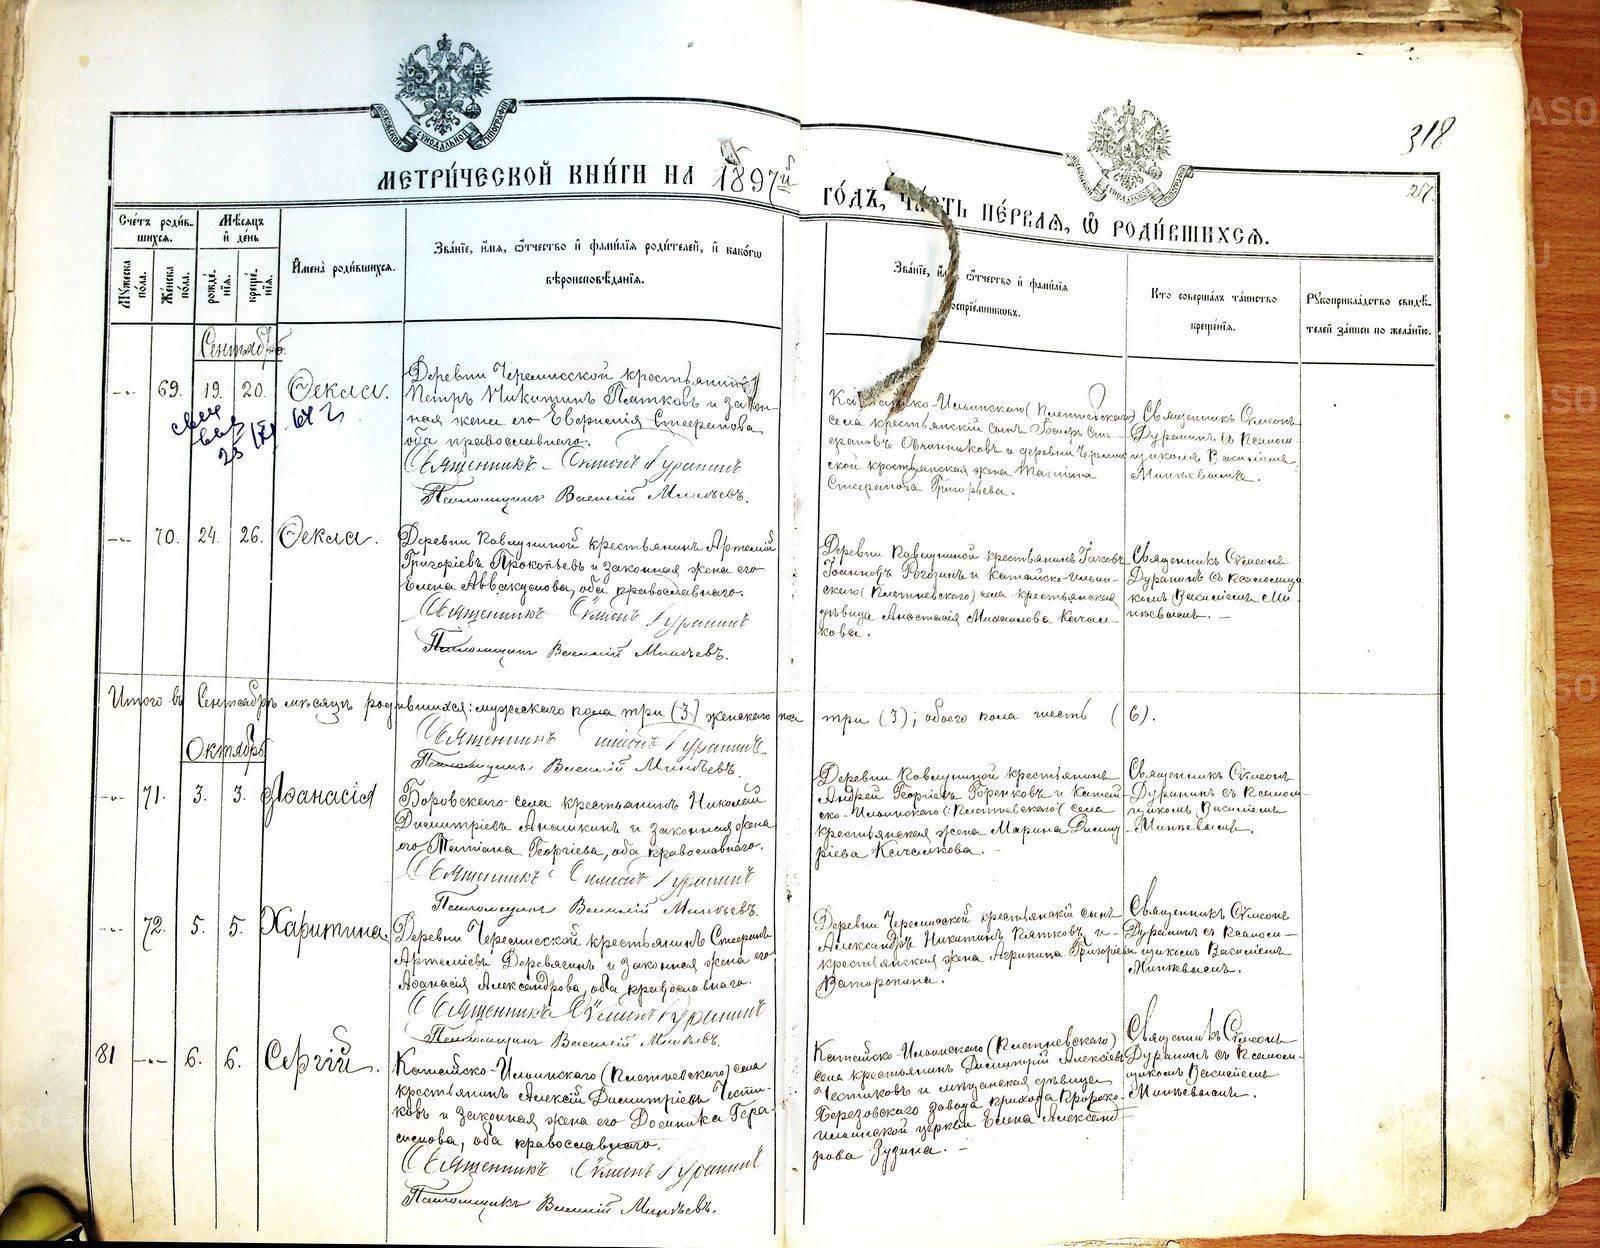 МОСКОВСКОЙ СѴНОДАЛЬНОЙ ТИПОГРАФІИ
318
МЕТРИ́ЧЕСКОЙ КНИ́ГИ НА 1897й ГО́ДЪ, ЧА́СТЬ ПЕ́РВАѦ, Ѽ РОДИ́ВШИХСѦ.
257.
Сче́тъ роди́в-
шихсѧ.
Мѣ́сѧцъ
и҆ де́нь
Му́жеска по́ла.
Же́нска по́ла.
рожде́-
нїѧ.
креще́-
нїѧ.
И҆мена̀ роди́вшихсѧ.
Зва́нїе, и҆́мѧ, ѻ҆́тчество и҆ фамı́лїѧ роди́телей, и҆ како́гѡ
вѣроисповѣ́данїѧ.
Зва́нїе, ѻ҆́тчество и҆ фамı́лїѧ
воспрїе́мниковъ.
Кто̀ соверша́лъ та́инство
креще́нїѧ.
Рꙋкоприкла́дство свидѣ́-
телей за́писи по жела́нїю.
Сентябрь.
69. 19. 20. Ѳекла.
Деревни Черемисской крестьянинъ
Петръ Никитинъ Пятковъ и закон-
ная жена его Евфросинія Стефанова
оба православнаго.
Священникъ Симеонъ Дуранинъ
Псаломщикъ Василій Минѣевъ.
Катайско-Ильинскаго (Плетневскаго)
села крестьянскій сынъ Сте-
фановъ Овчинниковъ и деревни Черемис-
ской крестьянская жена Татіана
Стефанова Григорьева.
Священникъ Сѵмеонъ
Дуранинъ съ псалом-
щикомъ Василіемъ
Минѣевымъ.
70. 24. 26. Ѳекла.
Деревни Павлуниной крестьянинъ Артемій
Григоріевъ Прокопьевъ и законная жена его
Елена Аввакумова, оба православнаго.
Священникъ Сѵмеонъ Дуранинъ
Псаломщикъ Василій Минѣевъ.
Деревни Павлуниной крестьянинъ Іаковъ
Іоанновъ Рогозинъ и Катайско-Ильин-
скаго (Плетневскаго) села крестьянская
дѣвица Анастасія Михаилова Качал-
кова.
Священникъ Сѵмеонъ
Дуранинъ съ псаломщи-
комъ Василіемъ Ми-
нѣевымъ.
Итого въ Сентябрѣ мѣсяцѣ родившихся: мужескаго пола три (3) женскаго пола три (3); обоего пола шесть (6).
Священникъ Симеонъ Дуранинъ
Псаломщикъ Василій Минѣевъ.
Октябрь
71. 3. 3. Аѳанасія
Боровскаго села крестьянинъ Николай
Димитріевъ Аникинъ и законная жена
его Татіана Георгіева, оба православнаго.
Священникъ Симеонъ Дуранинъ
Псаломщикъ Василій Минѣевъ.
Деревни Павлуниной крестьянинъ
Андрей Георгіевъ и Катай-
ско-Ильинскаго (Плетневскаго) села
крестьянская жена Марина Димит-
ріева Качалкова.
Священникъ Сѵмеонъ
Дуранинъ съ псалом-
щикомъ Василіемъ
Минѣевымъ.
72. 5. 5. Харитина.
Деревни Черемисской крестьянинъ Стефанъ
Артеміевъ Деревягинъ и законная жена его
Аѳанасія Александрова, оба православнаго.
Священникъ Сѵмеонъ Дуранинъ
Псаломщикъ Василій Минѣевъ.
Деревни Черемисской крестьянскій сынъ
Александръ Никитинъ Пятковъ и
крестьянская жена Агрипина Григоріева
Ваторопина.
Священникъ Сѵмеонъ
Дуранинъ съ псалом-
щикомъ Василіемъ
Минѣевымъ.
81 6. 6. Сергій.
Катайско-Ильинскаго (Плетневскаго) села
крестьянинъ Алексій Димитріевъ Чести-
ковъ и законная жена его Домника Гера-
симова, оба православнаго.
Священникъ Сѵмеонъ Дуранинъ
Псаломщикъ Василій Минѣевъ.
Катайско-Ильинскаго (Плетневскаго)
села крестьянинъ Димитрій Алексіевъ
Честиковъ и мѣщанская дѣвица
Березовскаго завода прихода Пророко-
Ильинской церкви Елена Александ-
рова Зудина.
Священникъ Сѵмеонъ
Дуранинъ съ псалом-
щикомъ Василіемъ
Минѣевымъ.